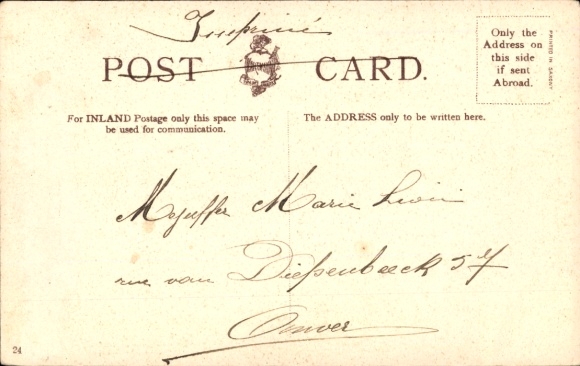 Imprimé
POST CARD.
Only the
Address on
this side
if sent
Abroad.
PRINTED IN SAXONY
For INLAND Postage only this space may
be used for communication.
The ADDRESS only to be written here.
Mejuffer Marie
rue van Diepenbeeck 5
Anver
24